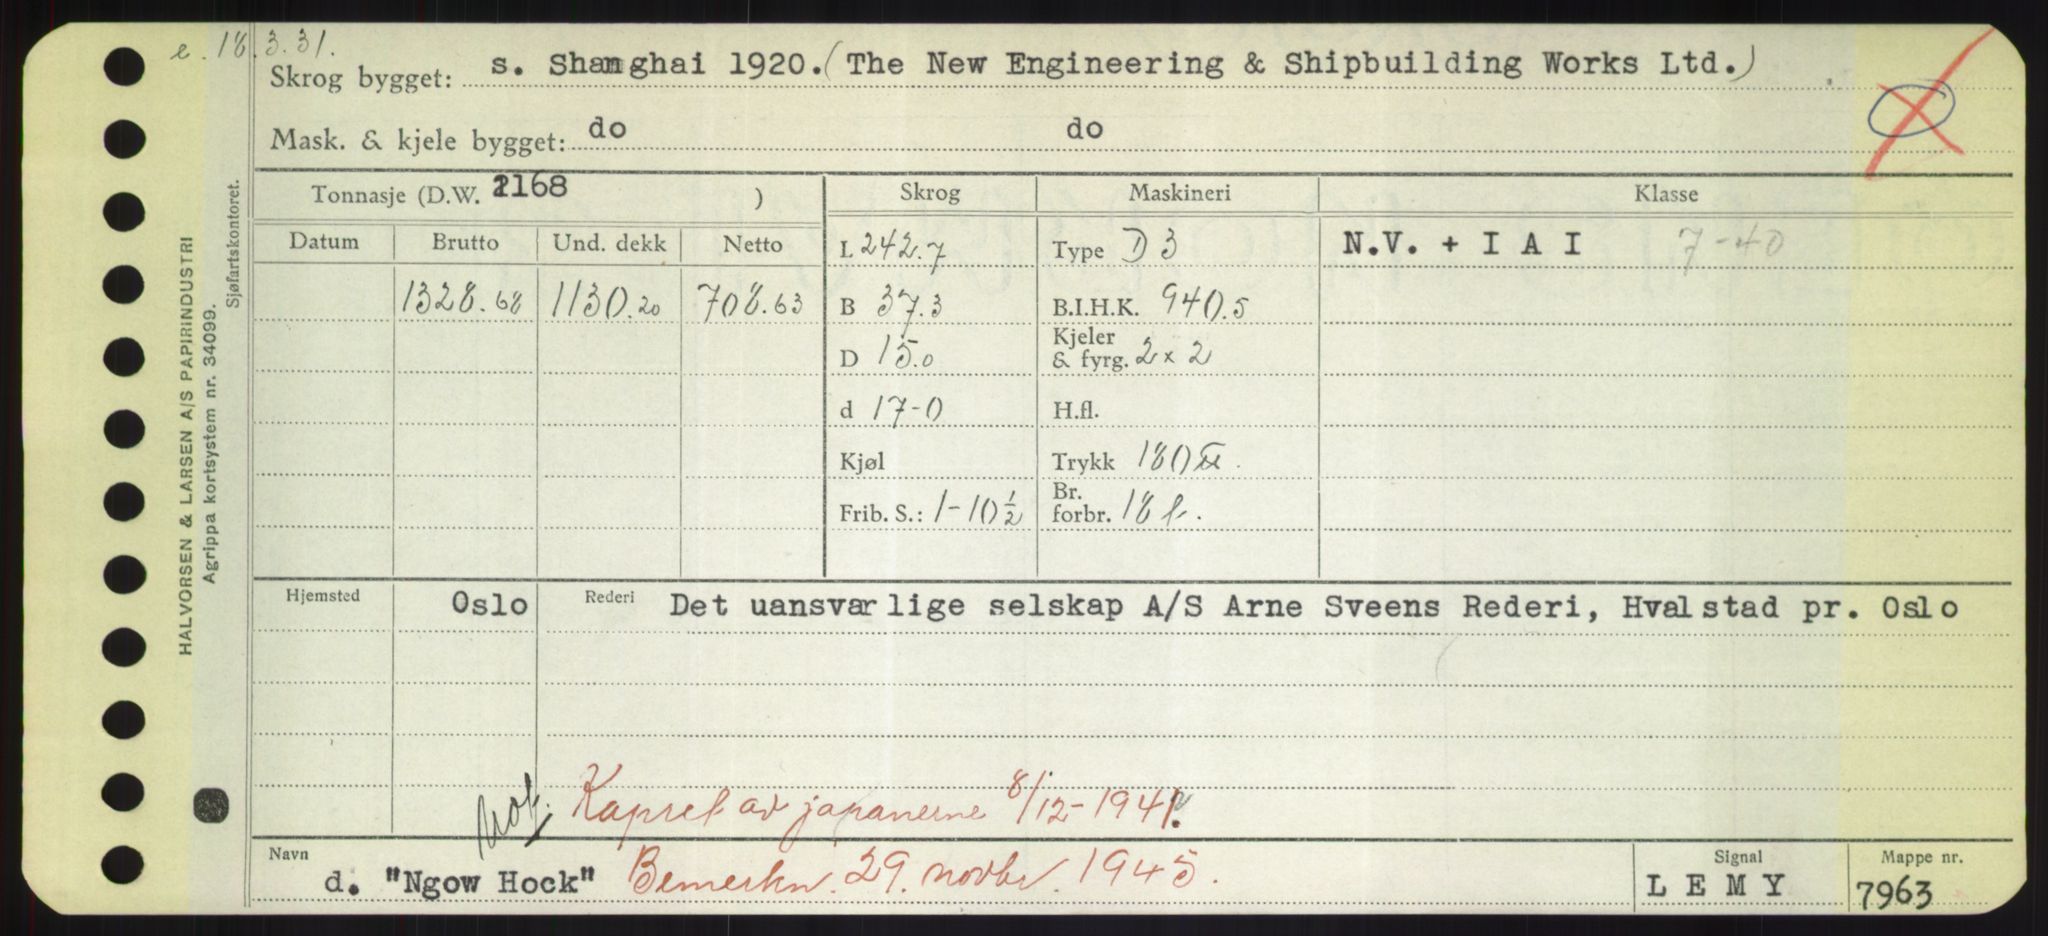 e. 18.3.31.
Skrog bygget: s. Shanghai 1920. (The New Engineering & Shipbuilding Works Ltd.)
Mask. & kjele bygget: do do
Tonnasje (D.W. 2168 )
Skrog Maskineri Klasse
Datum Brutto Und. dekk Netto
L 242.7 Type D 3 N.V. + I A I 7-40
1328.68 1130.20 708.63 B 37.3 B.I.H.K. 940.5
D 15.0 Kjeler & fyrg. 2 x 2
d 17-0 H.fl.
Kjøl Trykk 180
Frib. S.: 1-10 1/2 Br. forbr. 18 t.
Hjemsted Oslo Rederi Det uansvarlige selskap A/S Arne Sveens Rederi, Hvalstad pr. Oslo
Kapret av japanerne 8/12-1941.
Navn d. "Ngow Hock" Bemerkn. 29. novbr. 1945.
Signal L E M Y
Mappe nr. 7963
HALVORSEN & LARSEN A/S PAPIRINDUSTRI
Agrippa kortsystem nr. 34099.
Sjøfartskontoret.